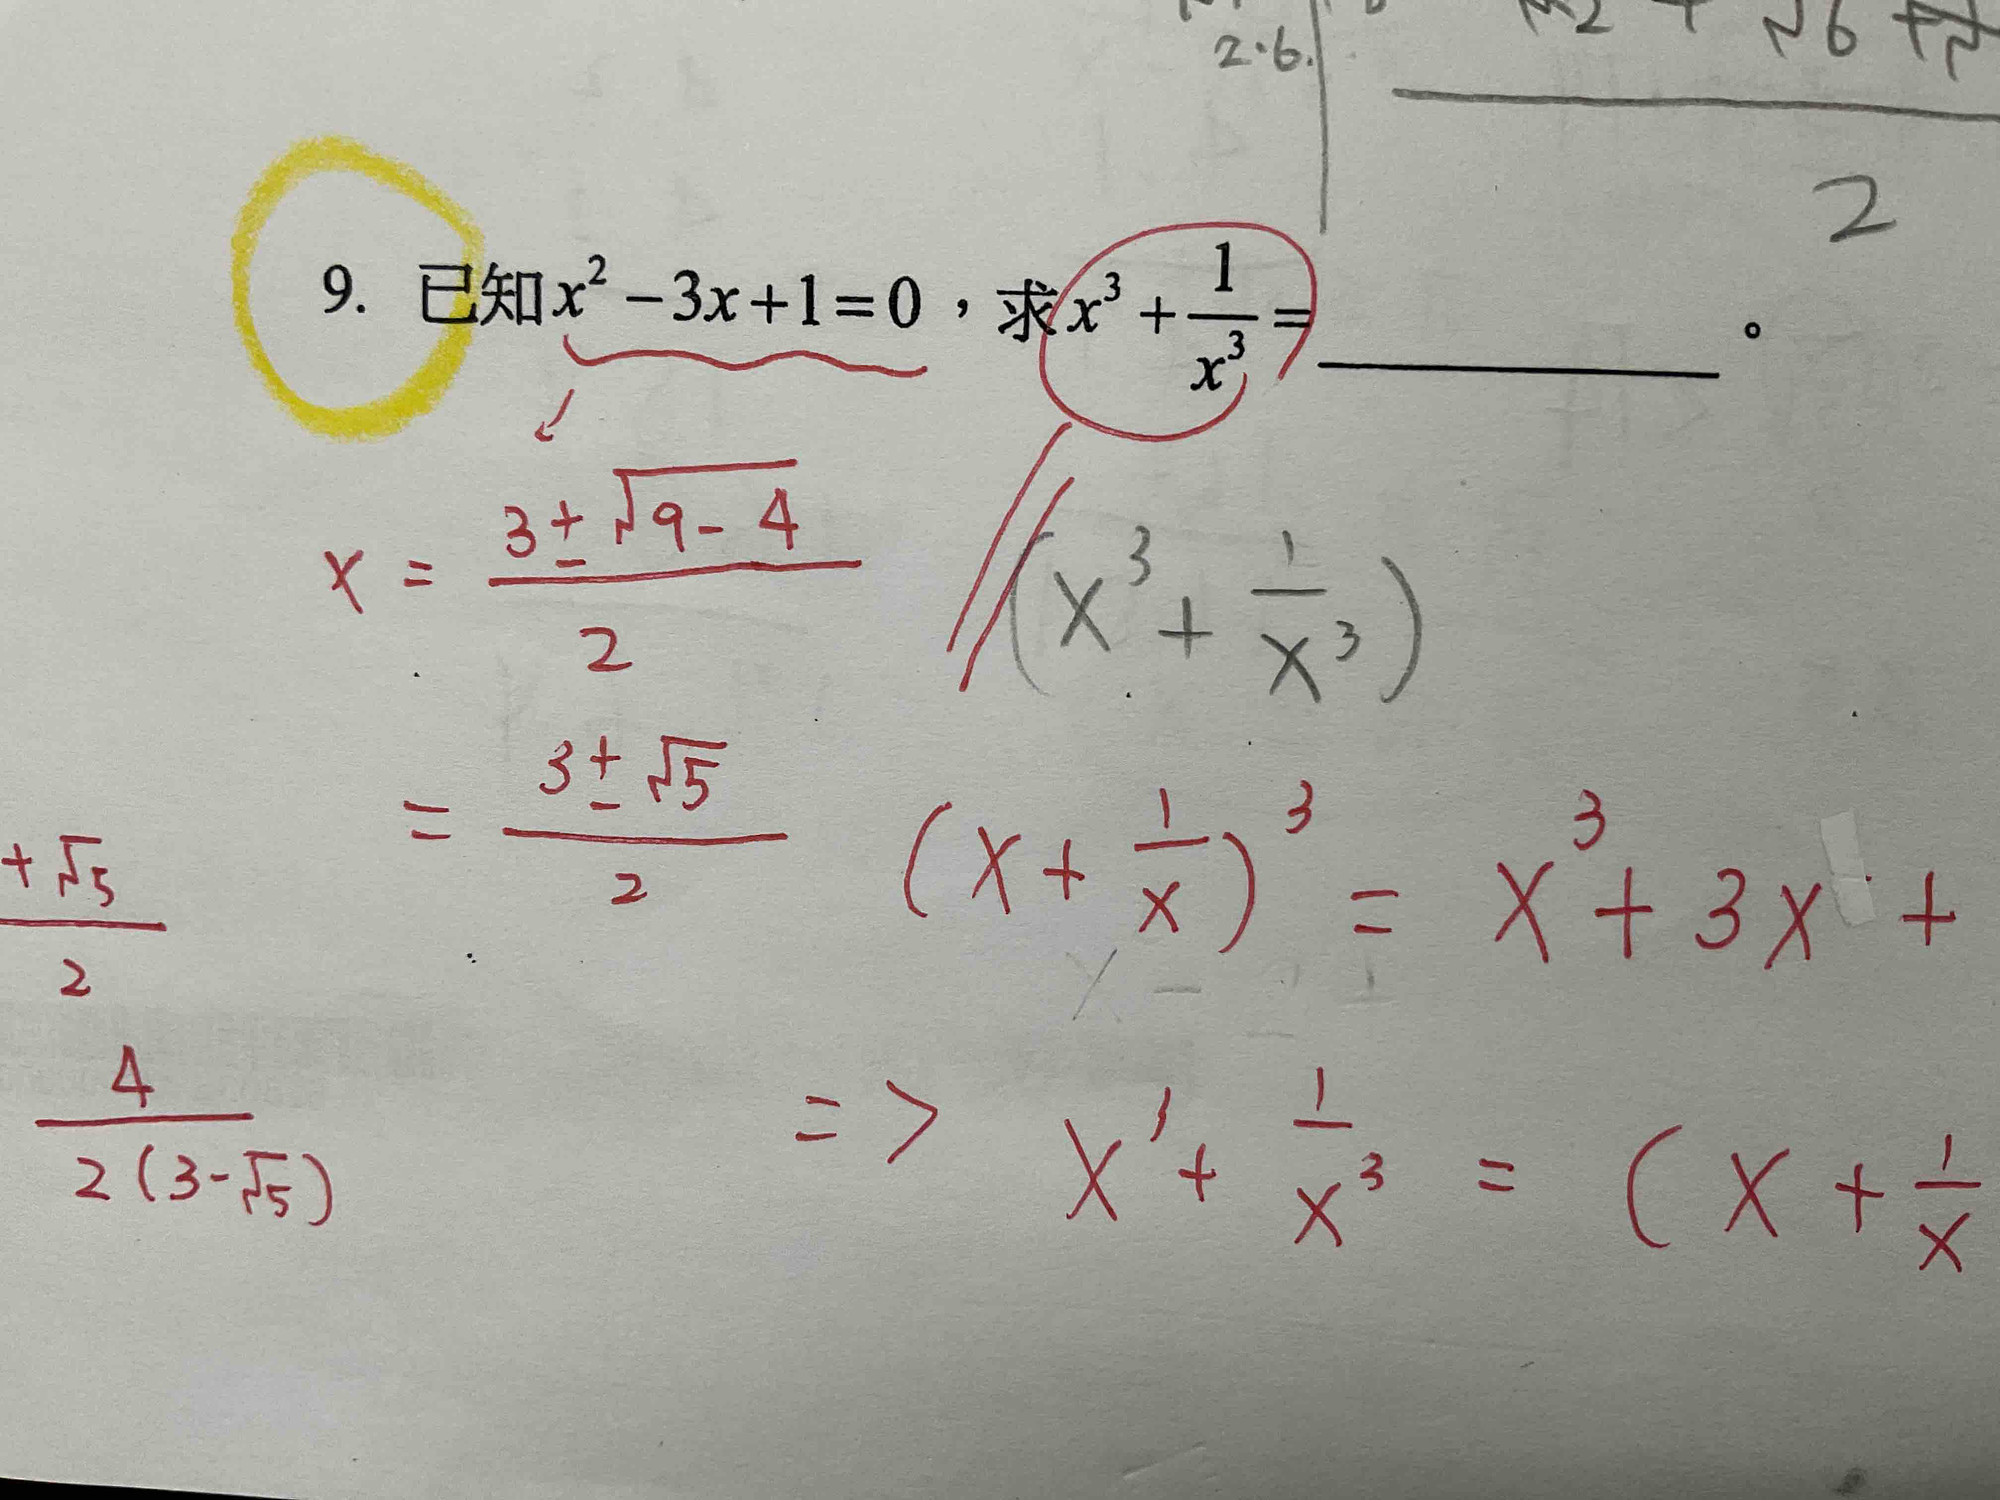 2·6.
√6 +
2
9. 已知 x² − 3x + 1 = 0，求 x³ + 1/x³ = ________。
x = (3 ± √(9 − 4))/2
(x³ + 1/x³)
= (3 ± √5)/2
(x + 1/x)³ = x³ + 3x +
+ √5
2
4/(2(3 − √5))
=> x³ + 1/x³ = (x + 1/x